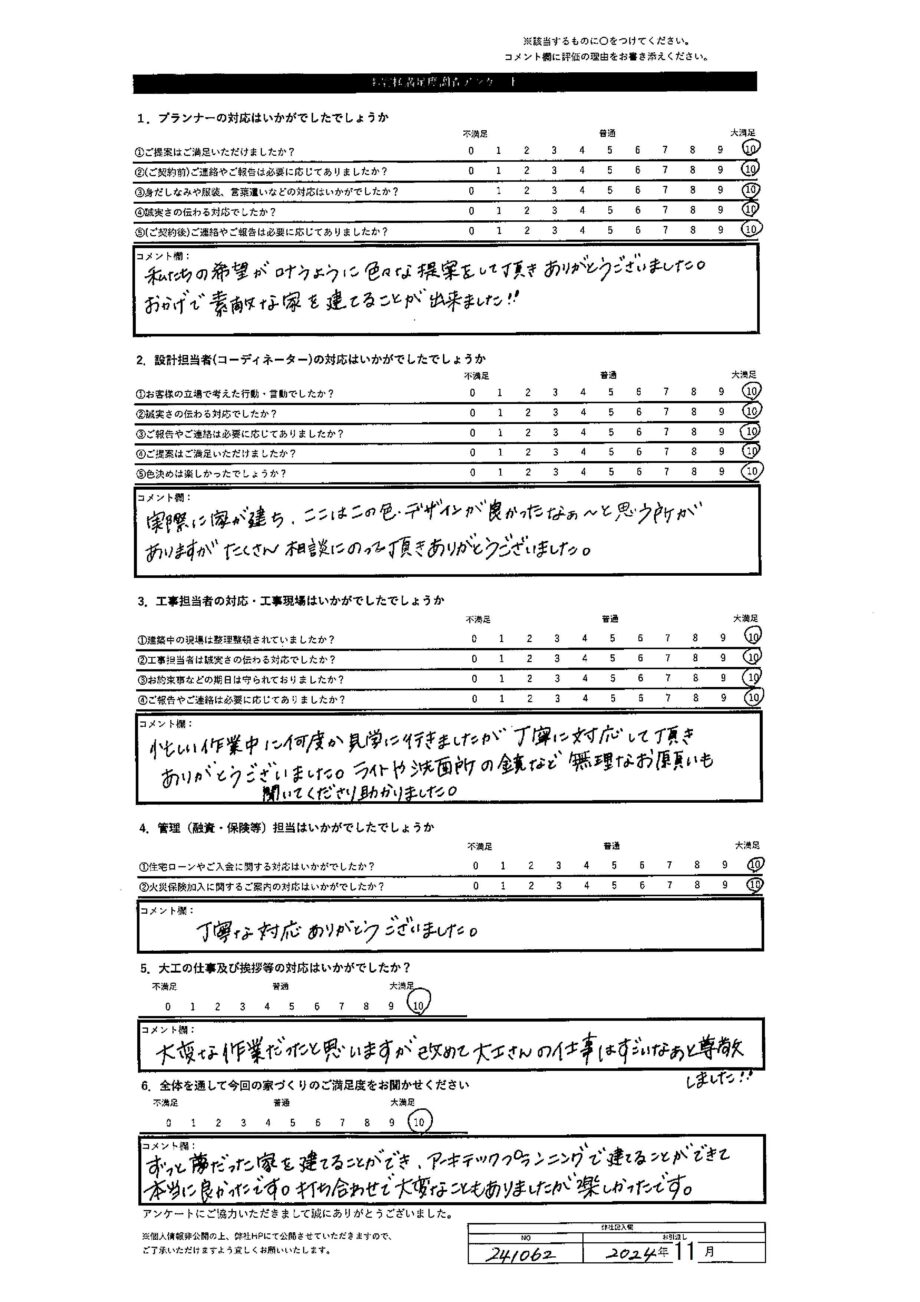 ※該当するものに〇をつけてください。
コメント欄に評価の理由をお書き添えください。
お客様満足度調査アンケート
1．プランナーの対応はいかがでしたでしょうか
不満足 普通 大満足
①ご提案はご満足いただけましたか？ 0 1 2 3 4 5 6 7 8 9 10
②(ご契約前)ご連絡やご報告は必要に応じてありましたか？ 0 1 2 3 4 5 6 7 8 9 10
③身だしなみや服装、言葉遣いなどの対応はいかがでしたか？ 0 1 2 3 4 5 6 7 8 9 10
④誠実さの伝わる対応でしたか？ 0 1 2 3 4 5 6 7 8 9 10
⑤(ご契約後)ご連絡やご報告は必要に応じてありましたか？ 0 1 2 3 4 5 6 7 8 9 10
コメント欄：
私たちの希望が叶うように色々な提案をして頂きありがとうございました。
おかげで素敵な家を建てることが出来ました!!
2．設計担当者(コーディネーター)の対応はいかがでしたでしょうか
不満足 普通 大満足
①お客様の立場で考えた行動・言動でしたか？ 0 1 2 3 4 5 6 7 8 9 10
②誠実さの伝わる対応でしたか？ 0 1 2 3 4 5 6 7 8 9 10
③ご報告やご連絡は必要に応じてありましたか？ 0 1 2 3 4 5 6 7 8 9 10
④ご提案はご満足いただけましたか？ 0 1 2 3 4 5 6 7 8 9 10
⑤色決めは楽しかったでしょうか？ 0 1 2 3 4 5 6 7 8 9 10
コメント欄：
実際に家が建ち、ここはこの色・デザインが良かったなぁ～と思う所が
ありますがたくさん相談にのって頂きありがとうございました。
3．工事担当者の対応・工事現場はいかがでしたでしょうか
不満足 普通 大満足
①建築中の現場は整理整頓されていましたか？ 0 1 2 3 4 5 6 7 8 9 10
②工事担当者は誠実さの伝わる対応でしたか？ 0 1 2 3 4 5 6 7 8 9 10
③お約束事などの期日は守られておりましたか？ 0 1 2 3 4 5 6 7 8 9 10
④ご報告やご連絡は必要に応じてありましたか？ 0 1 2 3 4 5 6 7 8 9 10
コメント欄：
忙しい作業中に何度か見学に行きましたが丁寧に対応して頂き
ありがとうございました。ライトや洗面所の鏡など無理なお願いも
聞いてくださり助かりました。
4．管理（融資・保険等）担当はいかがでしたでしょうか
不満足 普通 大満足
①住宅ローンやご入金に関する対応はいかがでしたか？ 0 1 2 3 4 5 6 7 8 9 10
②火災保険加入に関するご案内の対応はいかがでしたか？ 0 1 2 3 4 5 6 7 8 9 10
コメント欄：
丁寧な対応ありがとうございました。
5．大工の仕事及び挨拶等の対応はいかがでしたか？
不満足 普通 大満足
0 1 2 3 4 5 6 7 8 9 10
コメント欄：
大変な作業だったと思いますが改めて大工さんの仕事はすごいなあと尊敬
しました!!
6．全体を通して今回の家づくりのご満足度をお聞かせください
不満足 普通 大満足
0 1 2 3 4 5 6 7 8 9 10
コメント欄：
ずっと夢だった家を建てることができ、アーキテックプランニングで建てることができて
本当に良かったです。打ち合わせで大変なこともありましたが楽しかったです。
アンケートにご協力いただきまして誠にありがとうございました。
※個人情報非公開の上、弊社HPにて公開させていただきますので、
ご了承いただけますよう宜しくお願いいたします。
弊社記入欄
NO お引渡し
241062 2024年 11 月